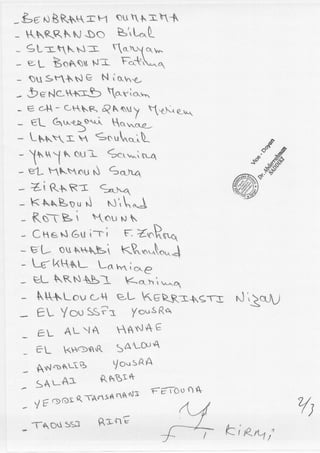 - BENBRAHIM OUMAIMA
- HARRANDO Bilal
- SLIMANI Maryam
- EL BOAOUNI Fatima
- OUSMANE Niane
- BENCHAIB Mariam
- ECH-CHARQAOUY Meriem
- EL Guezoni Hanae
- LAAMIM Souhail
- YAHYAOUI Samira
- EL MAMOUN Sara
- ZIRARI Sara
- KAABOUN Nihad
- ROTBI MOUNA
- CHENGUITI F. Zohra
- EL OUAHABI Khouloud
- LEKHAL Lamiae
- EL ARNABI Karima
- AHALOUCH EL KERRIASTI Nizar
- EL YOUSSFI YOUSRA
- EL ALYA HANAE
- EL KHDAR SALOUA
- ANDALIB YOUSRA
- SALAI RABIA
- YEDDIR TAMSAMANI FETOUMA
- TAOUSSI RIME
Vice-Doyen
KIRMI
2/3